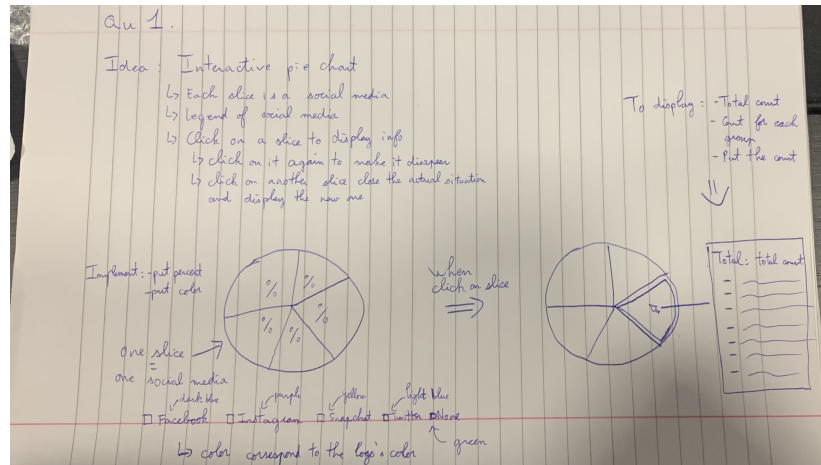 Qu 1.
Idea : Interactive pie chart
↳ Each slice is a social media
↳ Legend of social media
↳ Click on a slice to display info
↳ click on it again to make it disapear
↳ click on another slice close the actual situation
and display the new one
To display : - Total count
- Count for each
group
- Put the count
Implement : - put percent
- put color
% % % % %
when
click on slice
Total : total count
one slice
=
one social media
dark blue purple yellow light blue
Facebook Instagram Snapchat Twitter None
green
↳ color correspond to the logo's color